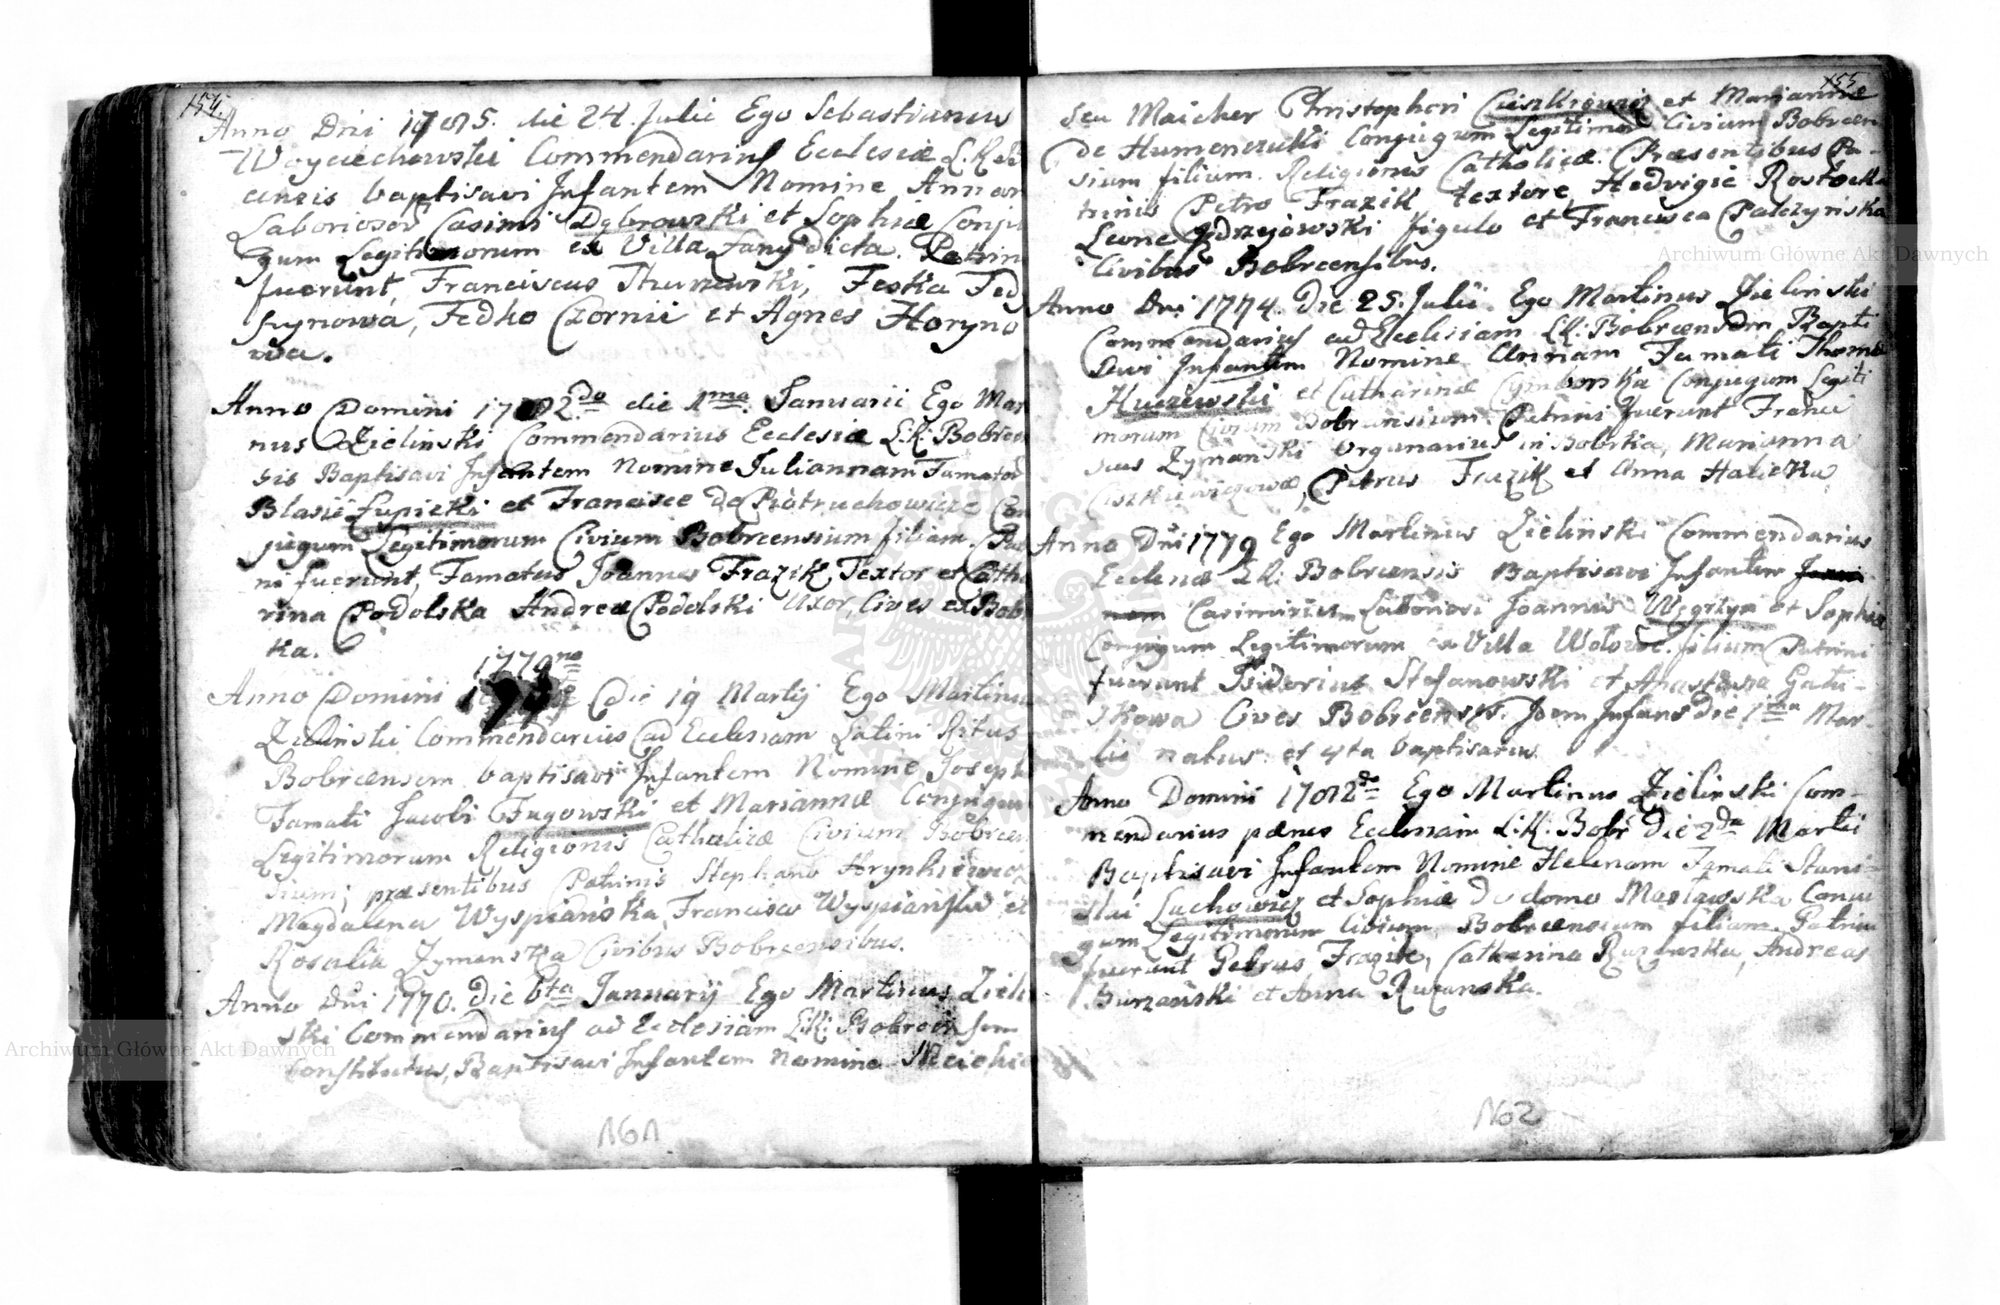 154.
Anno Dni 1785. die 24. Julii Ego Sebastianus
Woyciechowski Commendarius Ecclesiæ L. R. Bobr
censis baptisavi Infantem Nomine Annam
Laboriosor Casimi Dybrowski et Sophiæ Conju
gum Legitimorum ex Villa Lany dicta. Patrin
fuerunt, Franciscus Thurzewski, Feska Fed
Fedko Czornii et Agnes Horyno
wa.
Anno Domini 1782do die 1ma Januarii Ego Mar
nus Zielinski Commendarius Ecclesiæ L: R: Bobrcen
sis Baptisavi Infantem Nomine Juliannam Famator
Blasii Łupicki et Francisce de Piotruchowicze Con
jugum Legitimorum Civium Bobrcensium filiam. Pat
ni fuerunt, Famatus Joannes Frazik, Textor et Catha
rina Podolska Andreæ Podolski Uxor, Cives ex Bobr
ka.
1779no
Anno Domini Die 19 Martij Ego Martinus
Zielinski Commendarius ad Ecclesiam Latini Ritus
Bobrcensem baptisavi Infantem Nomine Joseph
Famati Jacobi Fugowski et Mariannæ Conjugum
Legitimorum Religionis Catholicæ Civium Bobrcen
sium; præsentibus Patrinis Stephano Hrynkiewicz
Magdalena Wyspiańska, Francisco Wyspiański et
Rosalia Zymanska Civibus Bobrcensibus.
Anno Dni 1770. Die 6ta Januarij Ego Martinus Zielin
ski Commendarius ad Ecclesiam L: R: Bobrcensem
constitutus, Baptisavi Infantem Nomine Melchio
161
155
seu Maicher Christophori Cieszkiewicz et Mariannæ
de Humeniecki Conjugum Legitimor Civium Bobrcen
sium filium. Religionis Catholicæ. Præsentibus Pa-
trinis Petro Frazik textore, Hedvigie Rostocka
Leone Jędrzejowski figulo et Francisca Palczyńska
Civibus Bobrcensibus.
Anno Dni 1774. Die 25. Julii. Ego Martinus Zielinski
Commendarius ad Ecclesiam L: R: Bobrcensem Bapti
savi Infantem Nomine Annam Famati Thomæ
Huczewski et Catharinæ Cymborska Conjugum Legiti
morum Civium Bobrcensium. Patrini fuerunt Franci
scus Zymański Organarius in Bobrka, Marianna
Ciszkiewiczowa, Petrus Frazik et Anna Halicka.
Anno Dni 1779 Ego Martinus Zielinski Commendarius
Ecclesiæ L: R: Bobrcensis Baptisavi Infantem
Casimirum Laboriosi Joannis Węgrzyn et Sophiæ
Conjugum Legitimorum ex Villa Wołowe. filium Patrini
fuerunt Isidorius Stefanowski et Anastasia Gału-
skowa Cives Bobrcenses. Idem Infans die 1ma Mar-
tii natus: et 4ta baptisatus.
Anno Domini 1782do Ego Martinus Zielinski Com-
mendarius pænes Ecclesiam L: R: Bobr Die 2da Martii
Baptisavi Infantem Nomine Helenam Famati Stani-
slai Lachowicz et Sophiæ de domo Masławska Conju
gum Legitimorum Civium Bobrcensium filiam. Patrini
fuerunt Petrus Frazik, Catharina Ruzanska, Andreas
Burzański et Anna Ruzanska.
162
Archiwum Główne Akt Dawnych
Archiwum Główne Akt Dawnych